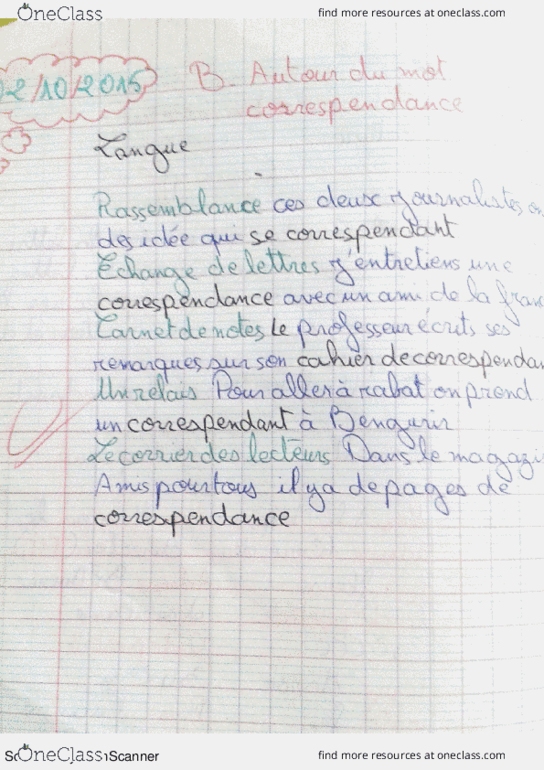 OneClass find more resources at oneclass.com
02/10/2015 B. Autour du mot
correspendance
Langue
Rassemblance ces deux journalistes on
des idée qui se correspendant
Echange de lettres j'entretiens une
correspendance avec un ami de la fran
Carnet de notes Le professeur écrits ses
remarques sur son cahier de correspendan
Un relais Pour aller à rabat on prend
un correspendant à Bengurir
Le corrier des lecteurs Dans le magazi
Amis pour tous il ya de pages de
correspendance
OneClass Scanner find more resources at oneclass.com